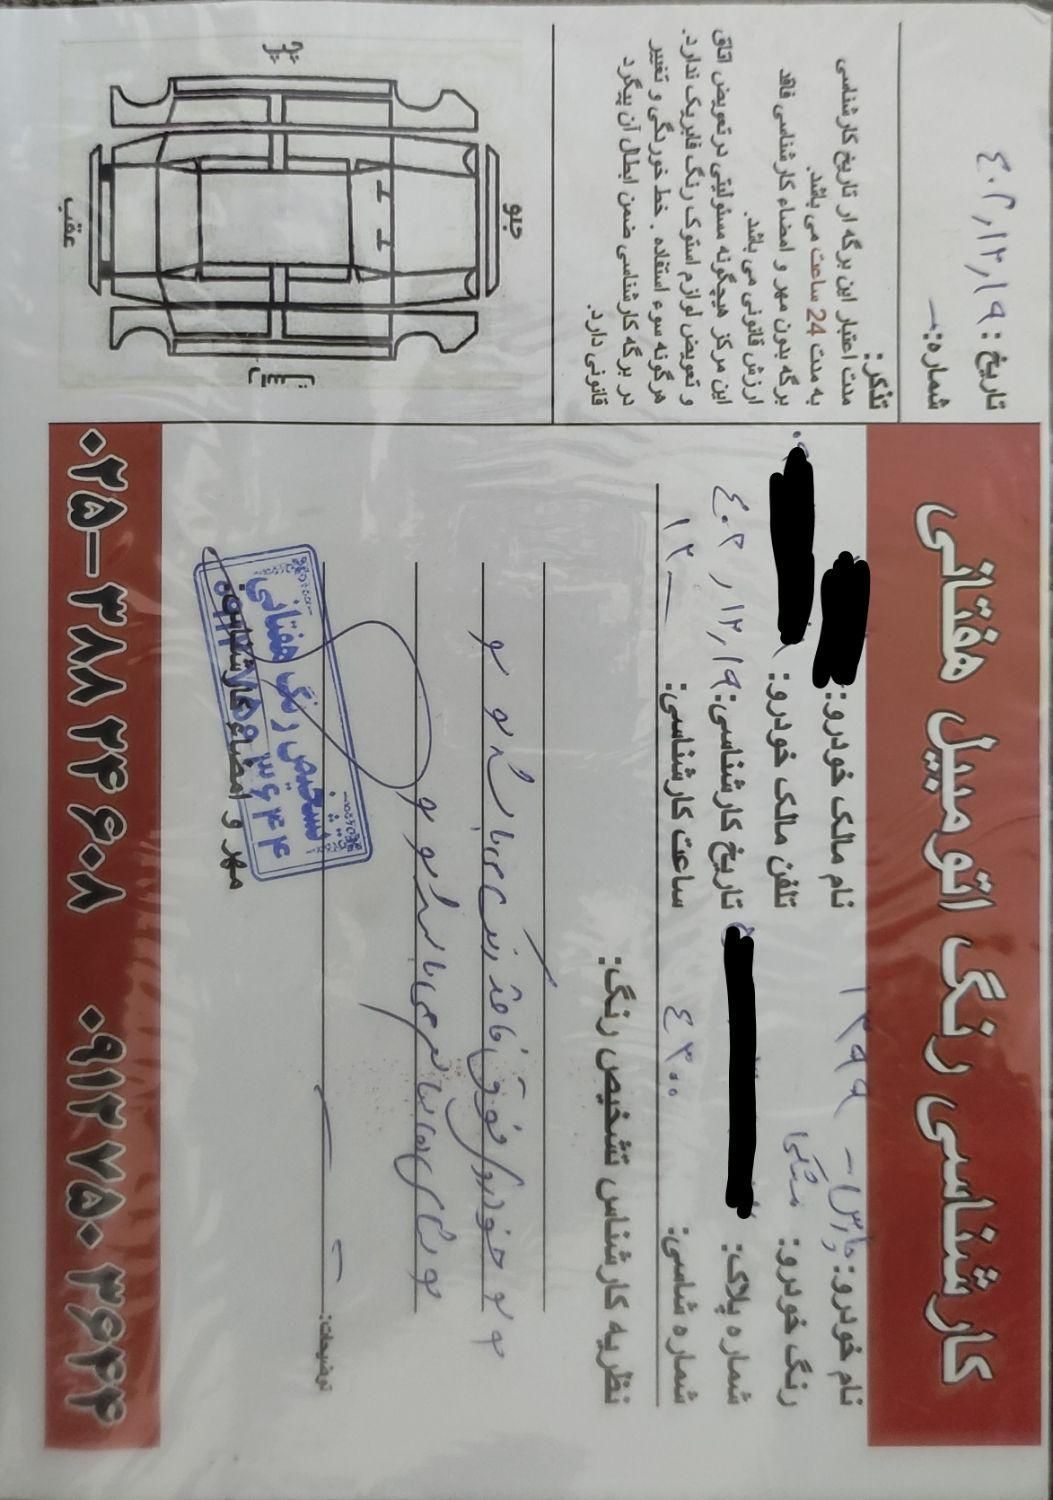 کارشناسی رنگ اتومبیل هفتانی
نام خودرو: پارس 1399
نام مالک خودرو:
رنگ خودرو: مشکی
تلفن مالک خودرو:
شماره پلاک:
تاریخ کارشناسی: ۴۰۲٫۱۲٫۱۹
شماره شاسی: ۴۳۰۰
ساعت کارشناسی: ۱۲
نظریه کارشناس تشخیص رنگ:
خودرو فوق فاقد رنگ می باشد
می باشد
توضیحات:
مهر و امضاء کارشناسی:
تشخیص رنگ هفتانی
۰۹۱۲۷۵۰۳۶۴۴
۰۲۵-۳۸۸۳۴۶۰۸
۰۹۱۲۷۵۰۳۶۴۴
تاریخ: ۴۰۲٫۱۲٫۱۹
شماره:
تذکر:
مدت اعتبار این برگه از تاریخ کارشناسی
به مدت 24 ساعت می باشد.
برگه بدون مهر و امضاء کارشناسی فاقد
ارزش قانونی می باشد.
این مرکز هیچگونه مسئولیتی در تعویض اتاق
و تعویض لوازم استوک رنگ فابریک ندارد.
هرگونه سوء استفاده . خط خوردگی و تغییر
در برگه کارشناسی ضمن ابطال آن پیگرد
قانونی دارد.
جلو
عقب